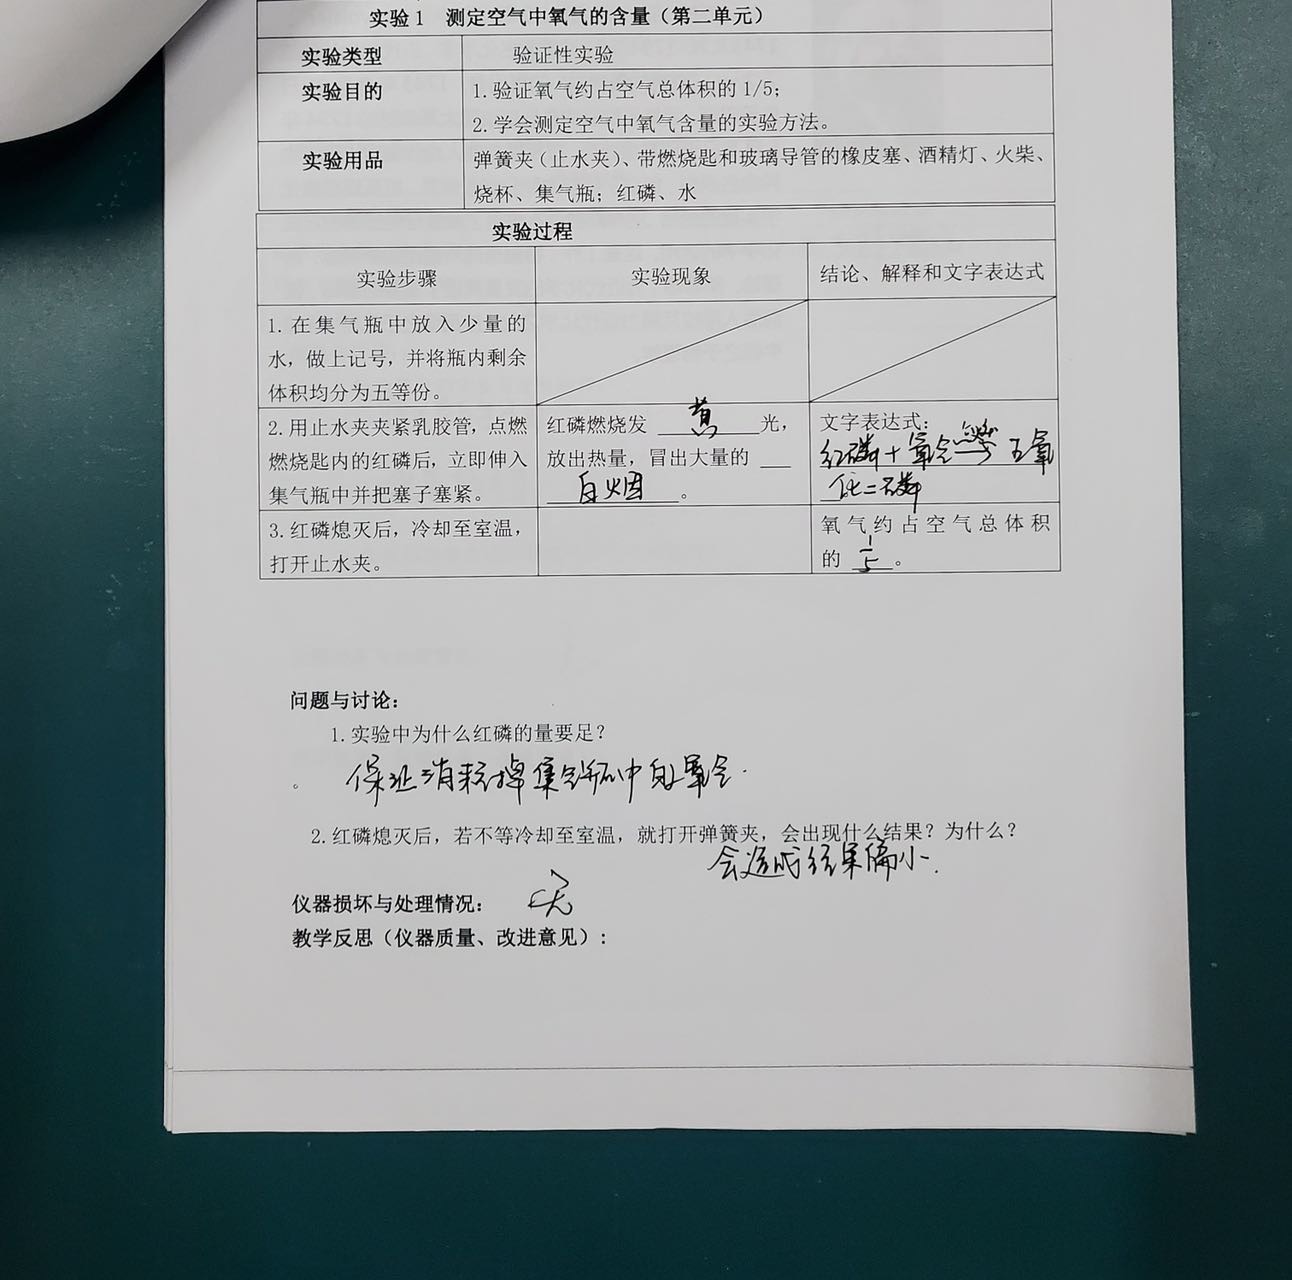 实验1 测定空气中氧气的含量（第二单元）
实验类型 验证性实验
实验目的 1.验证氧气约占空气总体积的1/5；
2.学会测定空气中氧气含量的实验方法。
实验用品 弹簧夹（止水夹）、带燃烧匙和玻璃导管的橡皮塞、酒精灯、火柴、
烧杯、集气瓶；红磷、水
实验过程
实验步骤 实验现象 结论、解释和文字表达式
1.在集气瓶中放入少量的
水，做上记号，并将瓶内剩余
体积均分为五等份。
2.用止水夹夹紧乳胶管，点燃
燃烧匙内的红磷后，立即伸入
集气瓶中并把塞子塞紧。
红磷燃烧发 黄 光，
放出热量，冒出大量的
白烟。
文字表达式：
红磷+氧气 点燃→ 五氧
化二磷
3.红磷熄灭后，冷却至室温，
打开止水夹。
氧气约占空气总体积
的 1/5 。
问题与讨论：
1.实验中为什么红磷的量要足？
保证消耗掉集气瓶中的氧气.
2.红磷熄灭后，若不等冷却至室温，就打开弹簧夹，会出现什么结果？为什么？
会造成结果偏小.
仪器损坏与处理情况： 无
教学反思（仪器质量、改进意见）：